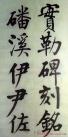 實勒碑刻銘
磻溪伊尹佐